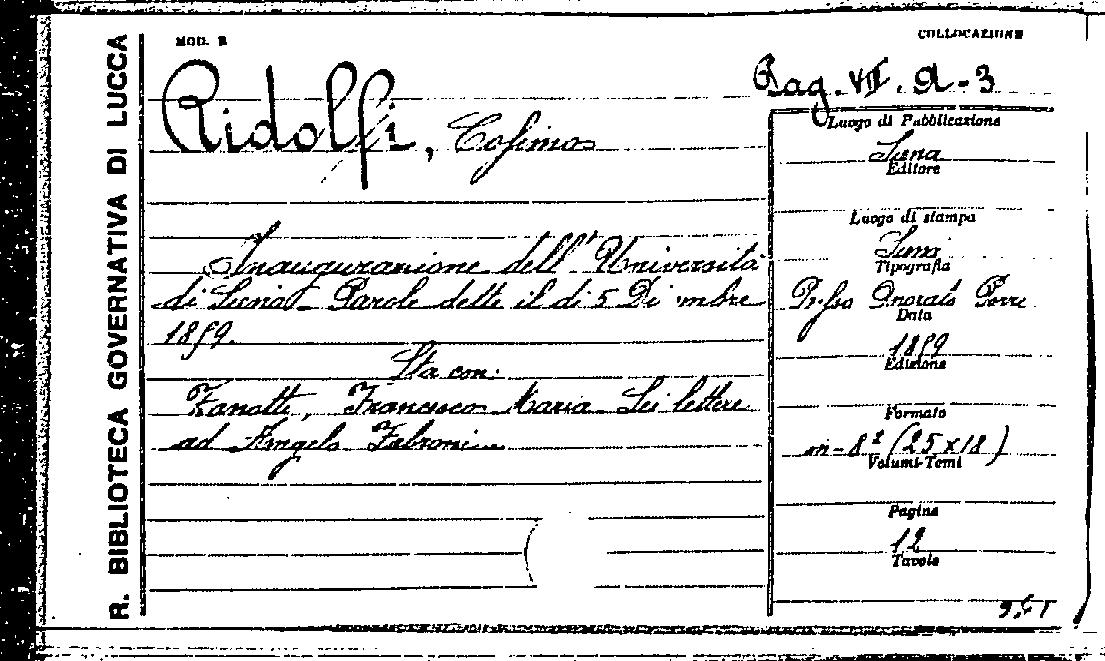 R. BIBLIOTECA GOVERNATIVA DI LUCCA
MOD. B
COLLOCAZIONE
Ridolfi, Cosimo
Inaugurazione dell'Università
di Siena - Parole dette il di 5 Di mbre
1859.
Sta con:
Zanotti, Francesco Maria Sei lettere
ad Angelo Fabroni
Rag. VII. A-3
Luogo di Pubblicazione
Siena
Editore
Luogo di stampa
Siena
Tipografia
Onorato Porri
Data
1859
Edizione
Formato
in-8º (25x18)
Volumi-Tomi
Pagine
12
Tavole